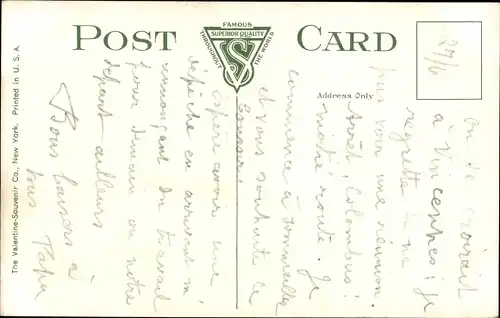 POST CARD
FAMOUS
SUPERIOR QUALITY
THROUGHOUT THE WORLD
VS
Address Only
The Valentine-Souvenir Co., New York. Printed in U. S. A.
27/6
On se croirait
à Vincennes! je
regrette de ne
pas voir une réunion.
Arrêt, Columbus!
notre route. Je
commence à sommeiller
et vous souhaite ce
bonsoir
espère avoir une
dépêche en arrivant m'
annonçant du travail
pour demain ou notre
départ ailleurs
Bons baisers à
tous Papa